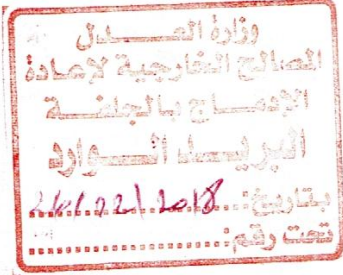 وزارة العــدل
المصالح الخارجية لإعادة
الإدمــاج بالجلفــة
البريــد الــوارد
بتاريخ: 26/02/2018
تحت رقم: